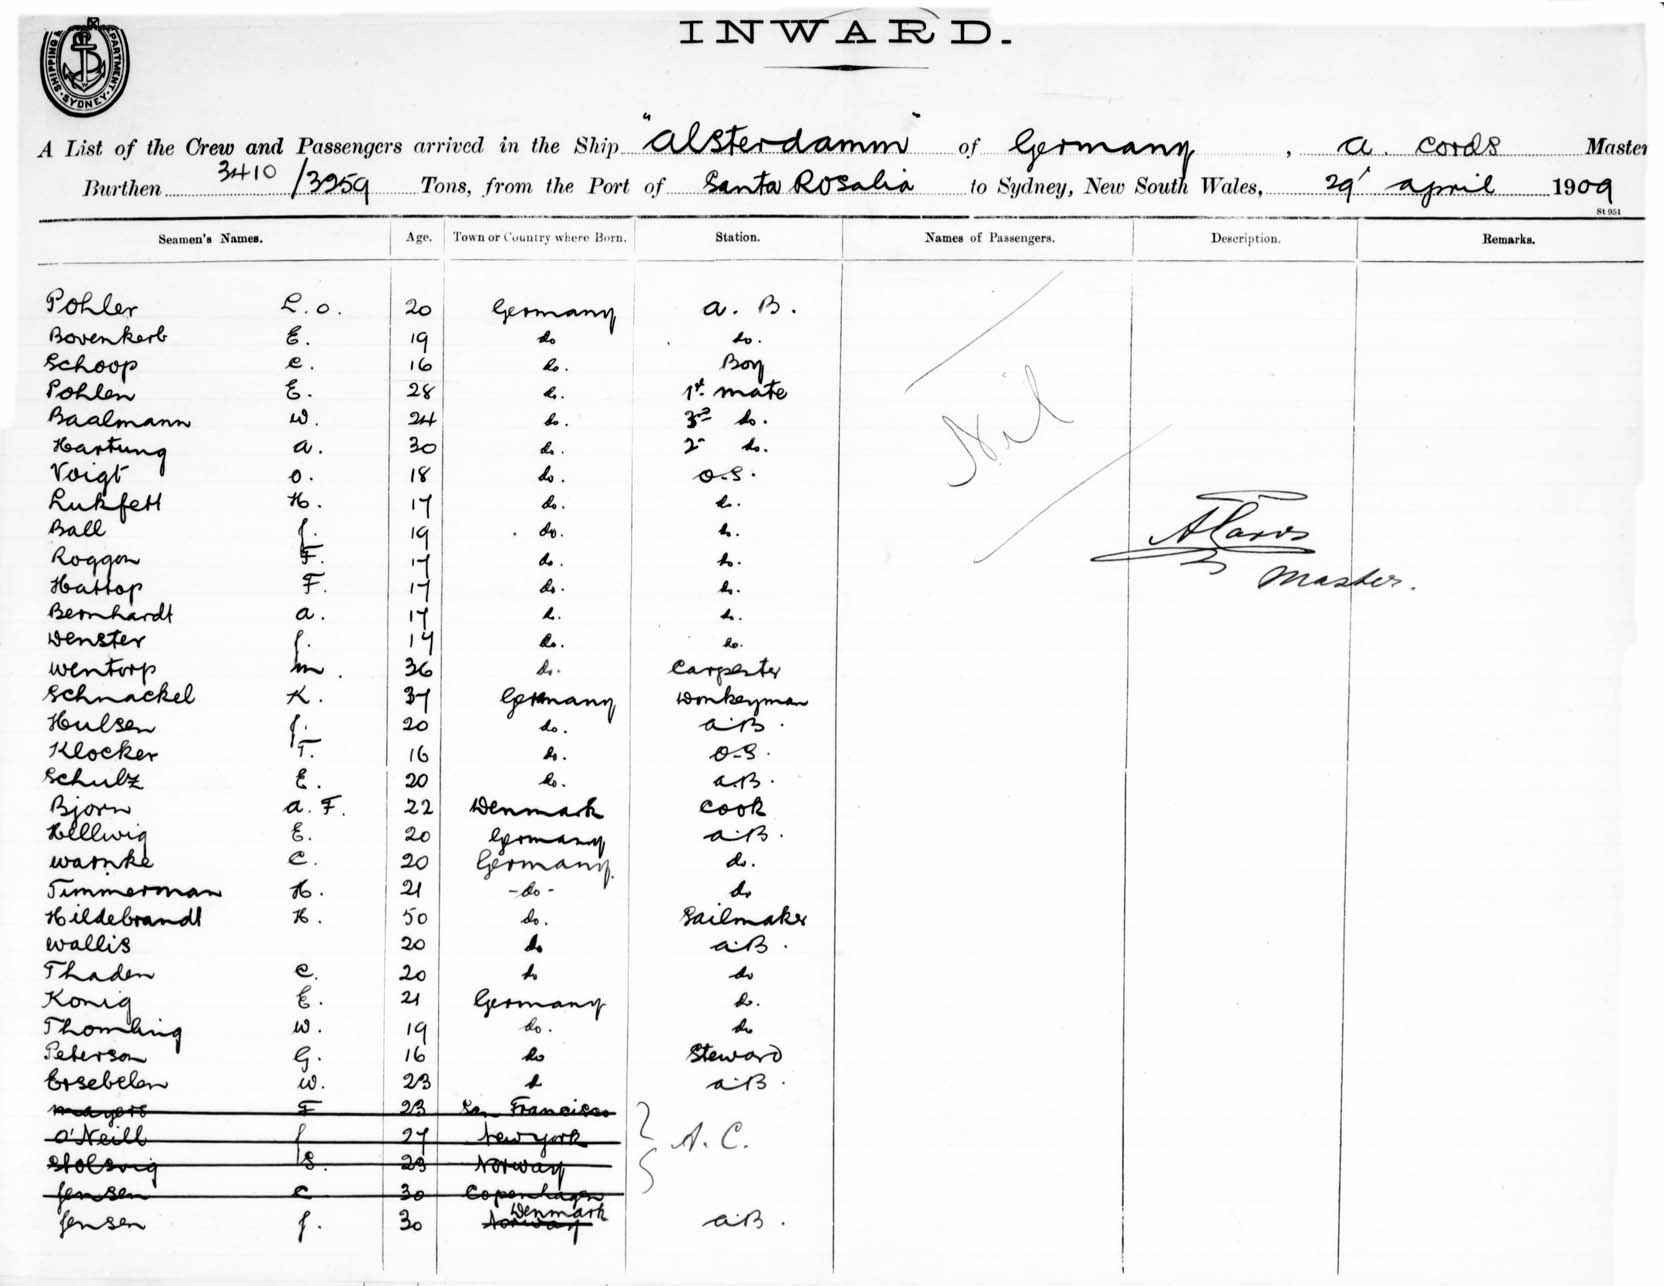 INWARD.
SHIPPING DEPARTMENT. SYDNEY.
A List of the Crew and Passengers arrived in the Ship "Alsterdamm" of Germany, A. Cords Master
Burthen 3410/3259 Tons, from the Port of Santa Rosalia to Sydney, New South Wales, 29' April 1909
St 951
Seamen's Names. Age. Town or Country where Born. Station. Names of Passengers. Description. Remarks.
Pohler L. O. 20 Germany A. B.
Bovenkerb E. 19 do do.
Schoop C. 16 do. Boy
Pohlen E. 28 do. 1st mate
Baalmann W. 24 do. 3rd do.
Hartung A. 30 do. 2 do.
Voigt O. 18 do. O.S.
Lukfett H. 17 do. do.
Ball J. 19 do. do.
Roggon F. 17 do. do.
Hattop F. 17 do. do.
Bernhardt A. 17 do. do.
Denster J. do. do.
Wentorp M. 36 do. Carpenter
Schnackel K. 37 Germany Donkeyman
Hulsen J. 20 do. A.B.
Klocker T. 16 do. O.S.
Schulz E. 20 do. A.B.
Bjorn A. F. 22 Denmark Cook
Hellwig E. 20 Germany A.B.
Warnke C. 20 Germany. do.
Timmerman H. 21 -do- do
Hildebrandt H. 50 do. Sailmaker
Wallis 20 do A.B.
Thaden C. 20 do do
Konig E. 21 Germany do.
Thomling W. 19 do. do
Peterson G. 16 do Steward
Ersebelen W. 23 do A.B.
Mayers F 23 San Francisco
O'Neill J 27 New York A. C.
Stolsvig S. 23 Norway
Jensen C 30 Copenhagen
Jensen J. 30 Norway Denmark A.B.
Nil
A Cords
Master.